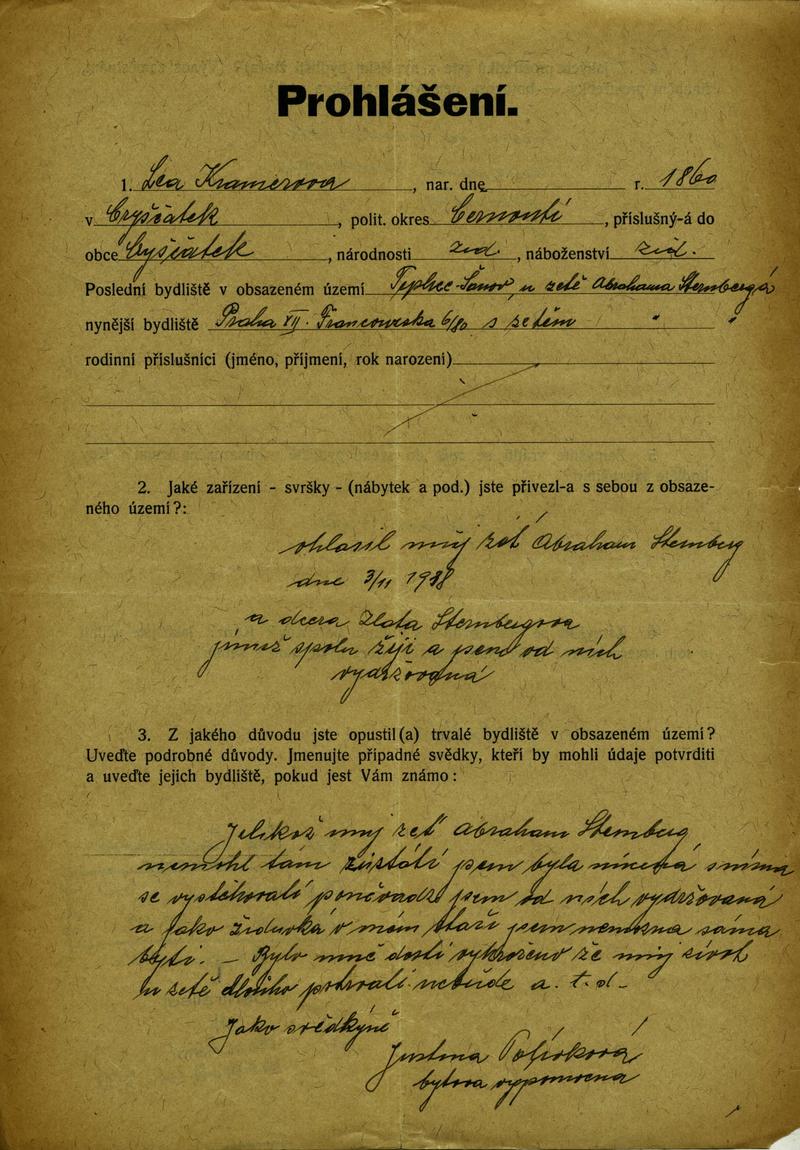 Prohlášení.
1. Lea Kramerova, nar. dne r. 1860
v Cryščatek, polit. okres Cernontí, příslušný-á do
obce Cryščatek, národnosti žid., náboženství žid.
Poslední bydliště v obsazeném území Teplice-Šanov, u zetě Abrahama Sternbergá
nynější bydliště Praha XII. Francouzska 6/80 s zetěm " "
rodinní příslušníci (jméno, příjmení, rok narození)
2. Jaké zařízení - svršky - (nábytek a pod.) jste přivezl-a s sebou z obsaze-
ného území?:
ohlasil můj zeť Abraham Sternberg
dne 3/11 1938
a dcera Zlata Sternbergova
jimiž spolu žiji a jsem od nich
vydržovaná
3. Z jakého důvodu jste opustil(a) trvalé bydliště v obsazeném území?
Uveďte podrobné důvody. Jmenujte případné svědky, kteří by mohli údaje potvrditi
a uveďte jejich bydliště, pokud jest Vám známo:
Jelikož můj zeť Abraham Sternberg
nemohl tam zůstáti jsem byla nucená s nima
se vystěhovali poněvadž jsem od nich vydržovaná
a jako židuvká v mém staří jsem nemožna sáma
býti. – Bylo mně dosti vyhroženo že můj život
u zetě dlouho potrvati nebude a. t. d –
Jako svědkyně
Justina
bytová